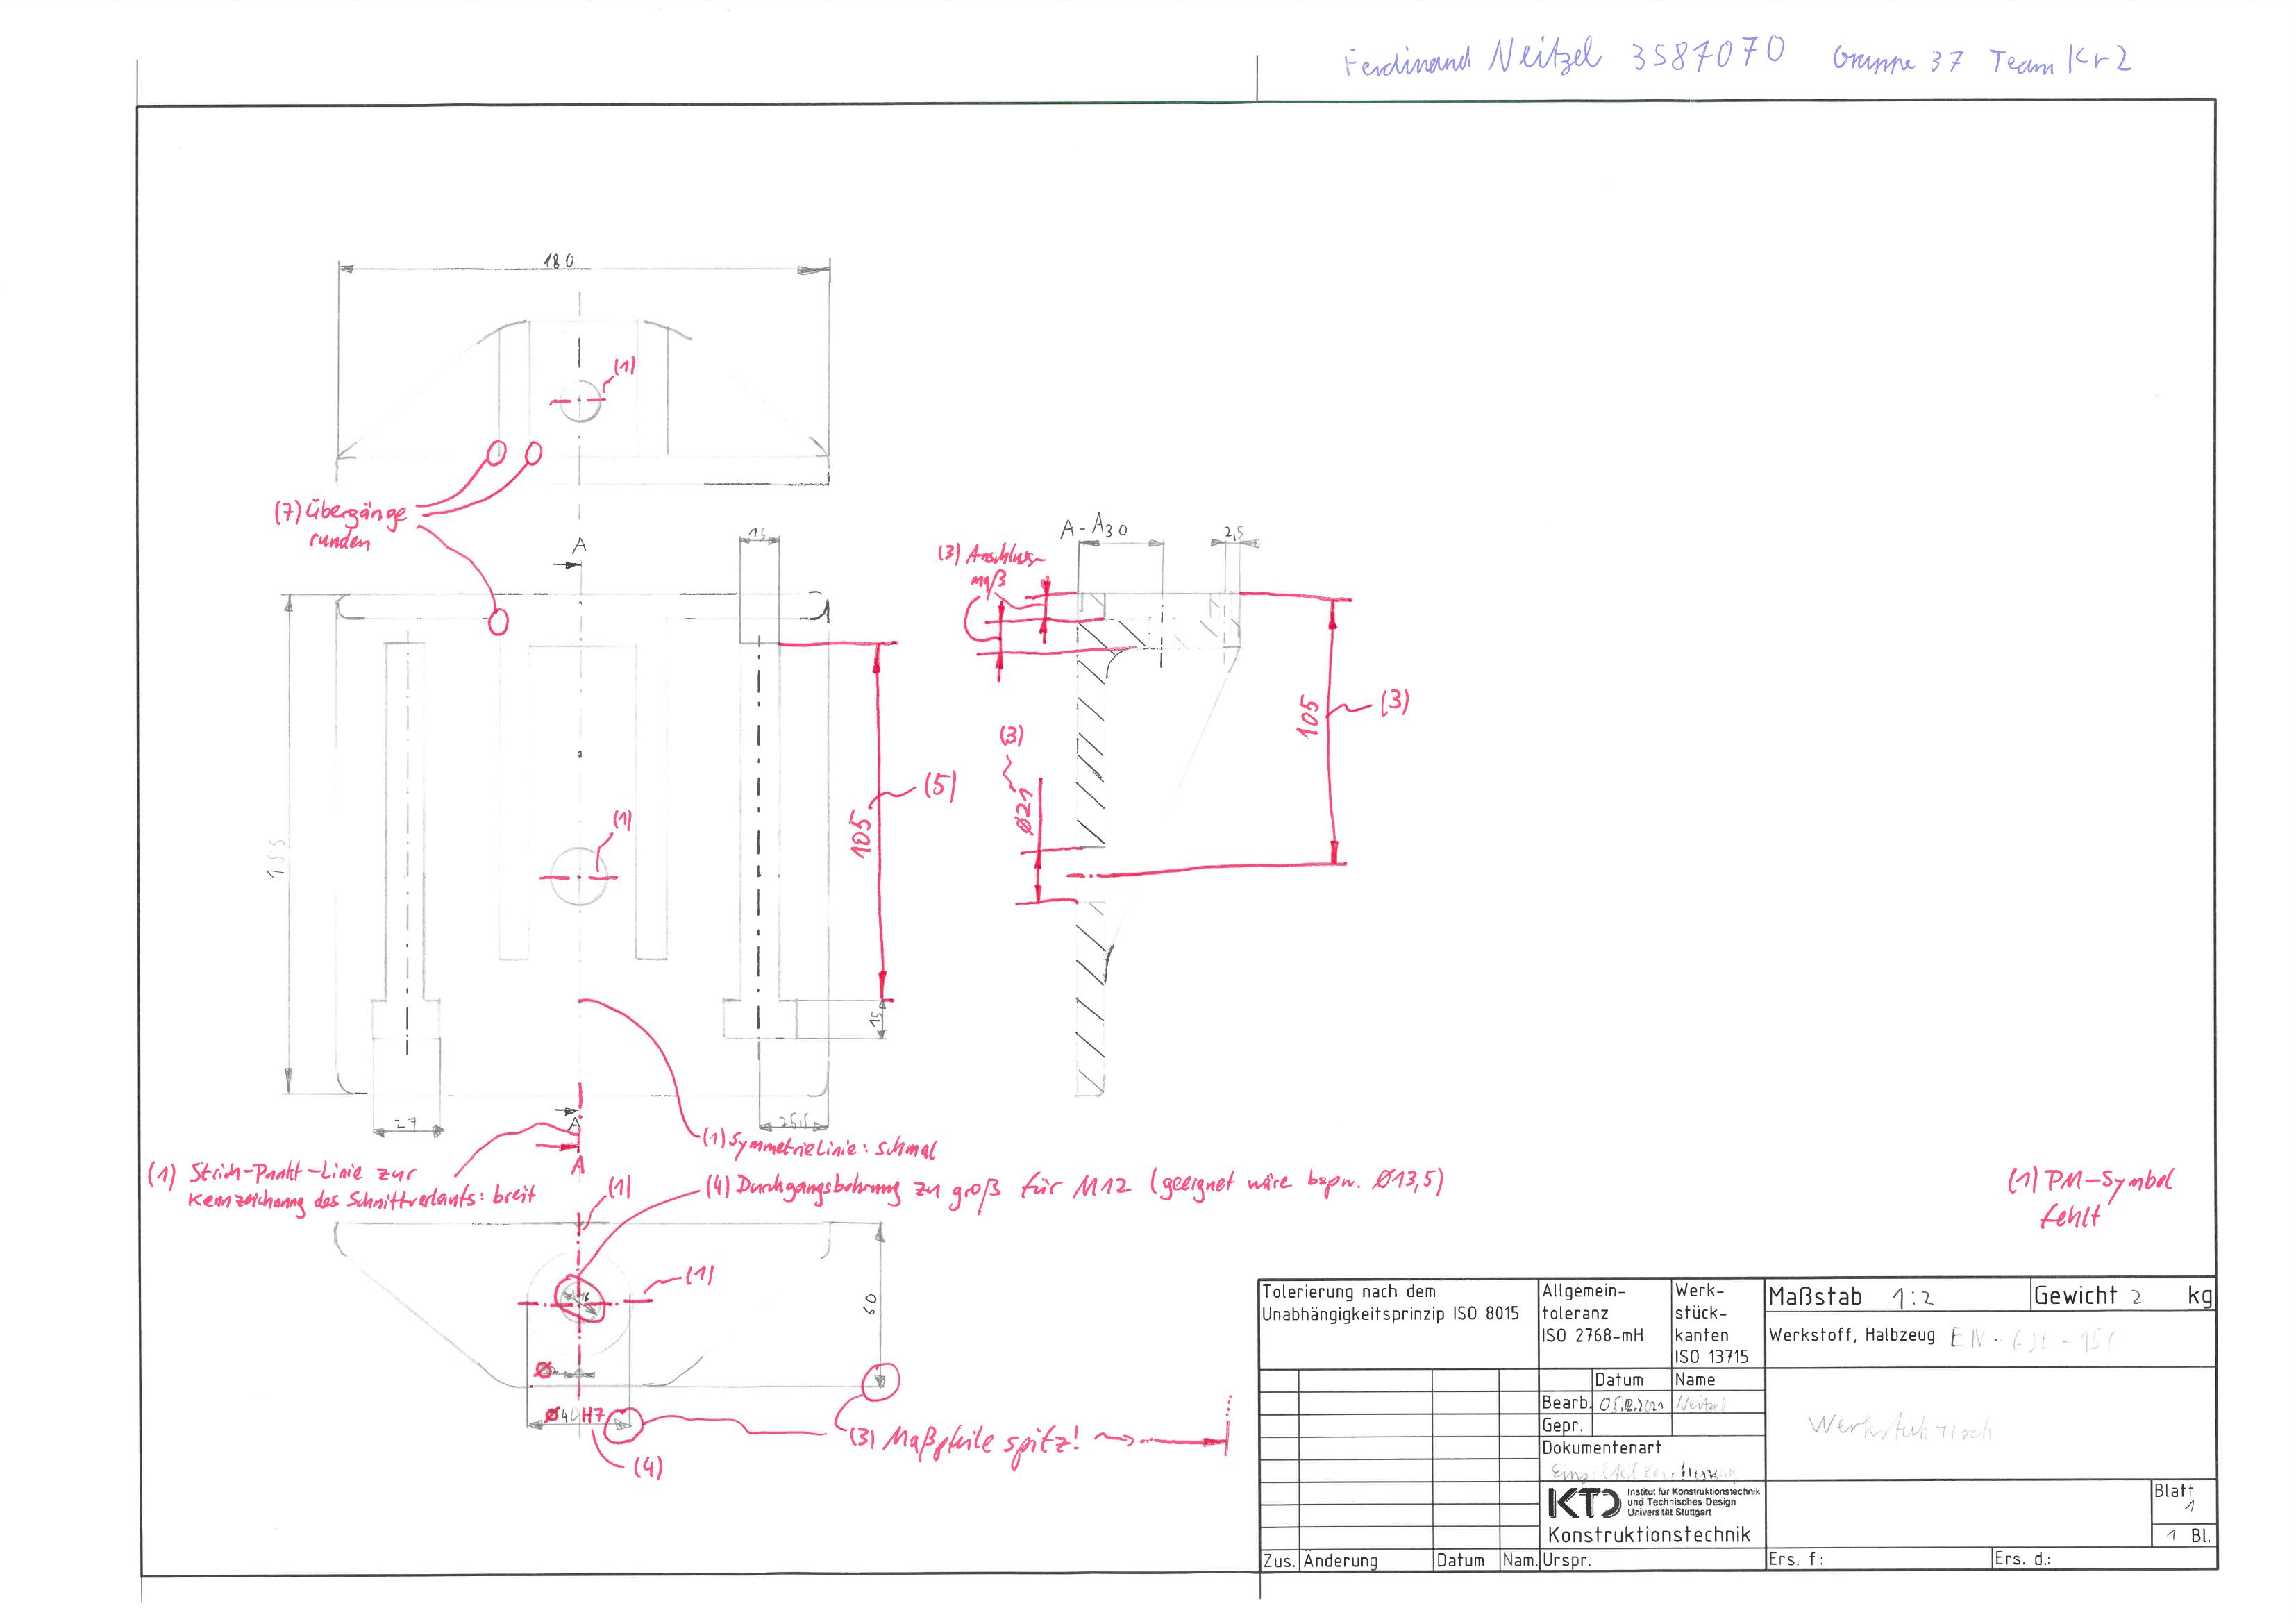 Ferdinand Neitzel 3587070 Gruppe 37 Team Kr2
180
(1)
(7) Übergänge
runden
A
15
A-A
30
25
(3) Anschluss-
maß
105
(3)
(3)
Ø21
(5)
105
(1)
155
15
27
A
25,5
A
(1) Symmetrielinie: schmal
(1) Strich-Punkt-Linie zur
Kennzeichnung des Schnittverlaufs: breit
(1)
(4) Durchgangsbohrung zu groß für M12 (geeignet wäre bspw. Ø13,5)
(1) PM-Symbol
fehlt
(1)
16
60
Ø
Ø40H7
(3) Maßpfeile spitz!
(4)
Tolerierung nach dem
Unabhängigkeitsprinzip ISO 8015
Allgemein-
toleranz
ISO 2768-mH
Werk-
stück-
kanten
ISO 13715
Maßstab 1:2
Gewicht 2 kg
Werkstoff, Halbzeug EN-GJL-150
Datum
Name
Bearb. 05.02.2021 Neitzel
Gepr.
Dokumentenart
Einzelteilzeichnung
Werkstück Tisch
KTD
Institut für Konstruktionstechnik
und Technisches Design
Universität Stuttgart
Konstruktionstechnik
Blatt
1
1 Bl.
Zus. Änderung Datum Nam. Urspr. Ers. f.: Ers. d.: